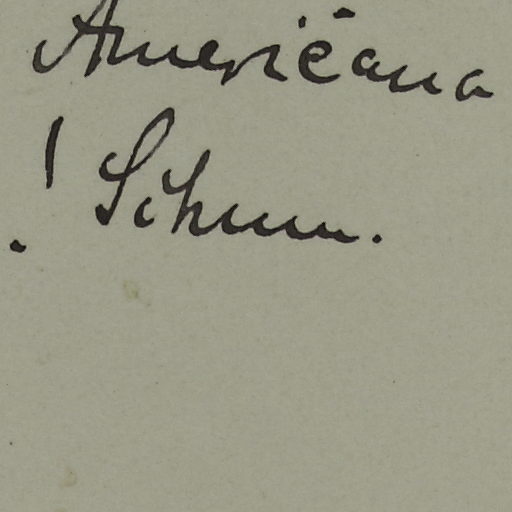 Americana
! Schum.